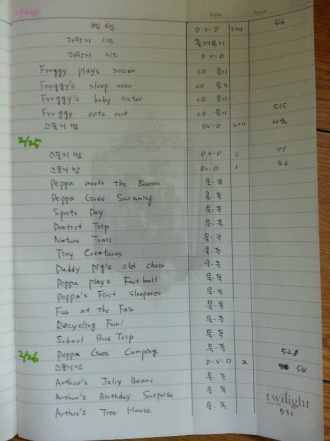 D.V.D 46
D.V.D
Froggy plays soccer CD 듣기
Froggy's sleep over CD 듣기
Froggy's baby sister CD 듣기
Froggy eats out CD 듣기 515
스폰지 밥 DVD
2/25
스폰지 밥 D.V.D 3
스폰지 밥 D.V.D 1 52
Peppa meets the Queen 음.독
Peppa Goes Swimming 음.독
Sports Day 음.독
Dentist Trip 음.독
Nature Trail 음.독
Tiny Creatures 음.독
Daddy pig's old chair 음.독
Peppa plays Football 음.독
Peppa's First Sleepover 음.독
Fun at the Fair 음.독
Recycling Fun! 음.독
School Bus Trip 음.독
Peppa Goes Camping 음.독 528
2/26
스폰지 밥 D.V.D 2 54
Arthur's Jelly Beans 음.독
Arthur's Birthday Surprise 음.독
Arthur's Tree House 음.독 531
twilight